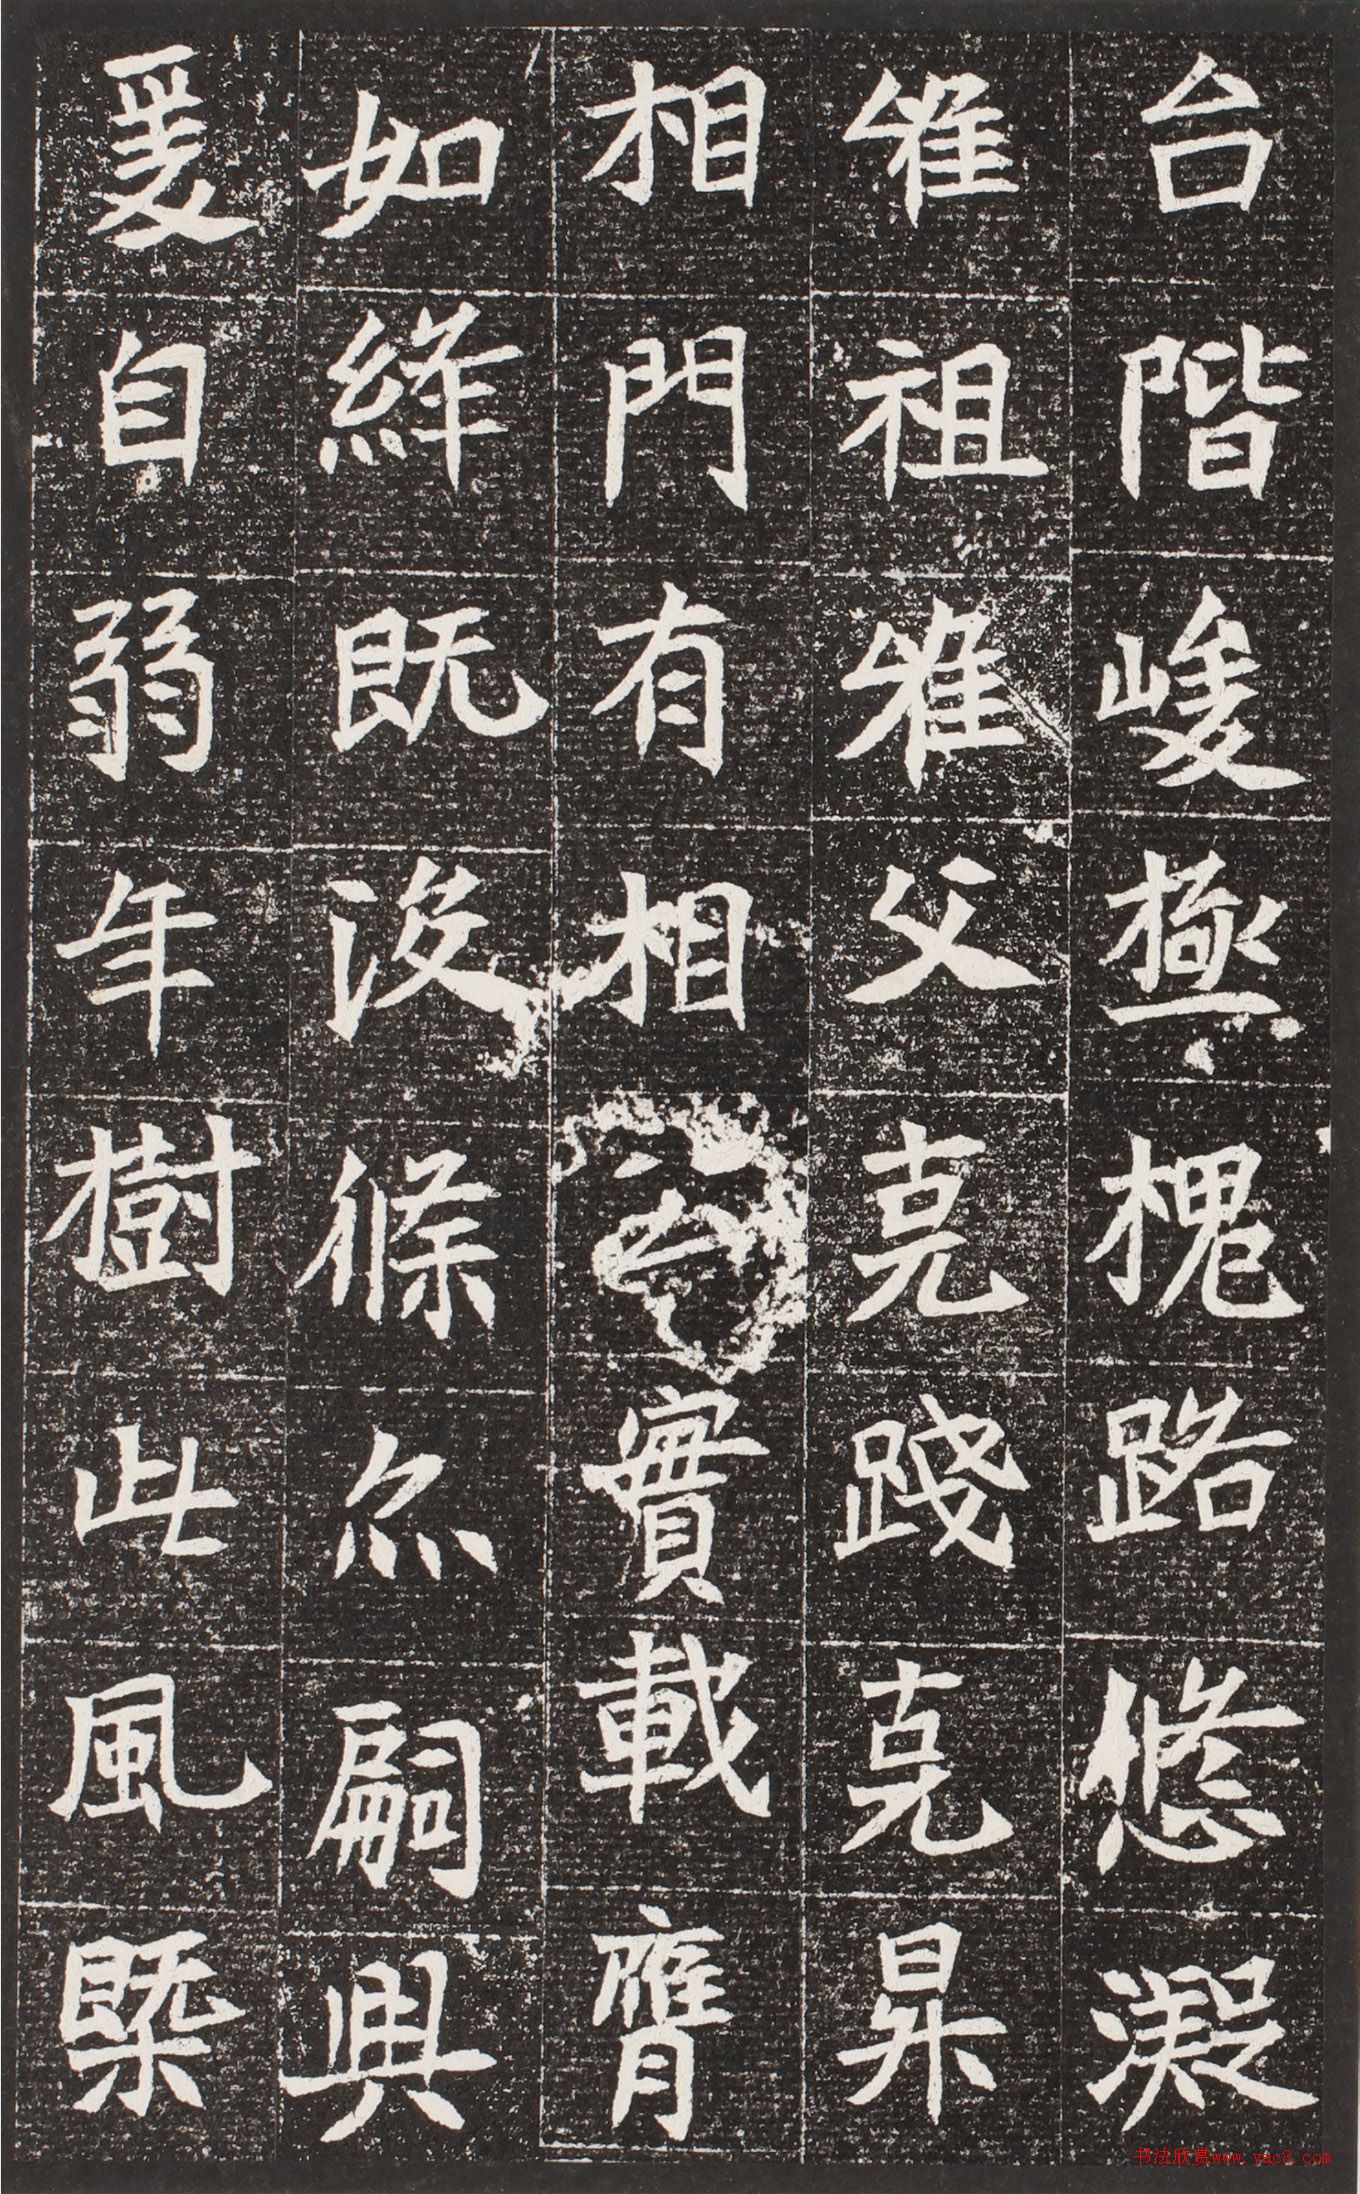 台階峻極槐路悠凝
唯祖唯父克踐克昇
相門有相實載膺
如絳既没條亦嗣興
爰自弱年樹此風槩
书法欣赏www.yac8.com